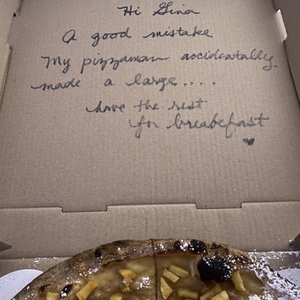 Hi Gina
A good mistake
My pizzaman accidentally
made a large....
have the rest
for breakfast
♥